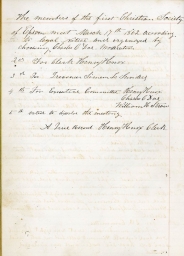 The members of the first Christian Society
of Epsom met March 17th 1862 according
to legal notice and organized by
choosing Charles C Doe Moderator
2nd Chose Henry Knox Clerk
3rd For Treasurer
4th For Executive Committee Henry Knox
Charles C Doe
William H
5th voted to dissolve the meeting
A True Record Henry Knox Clerk